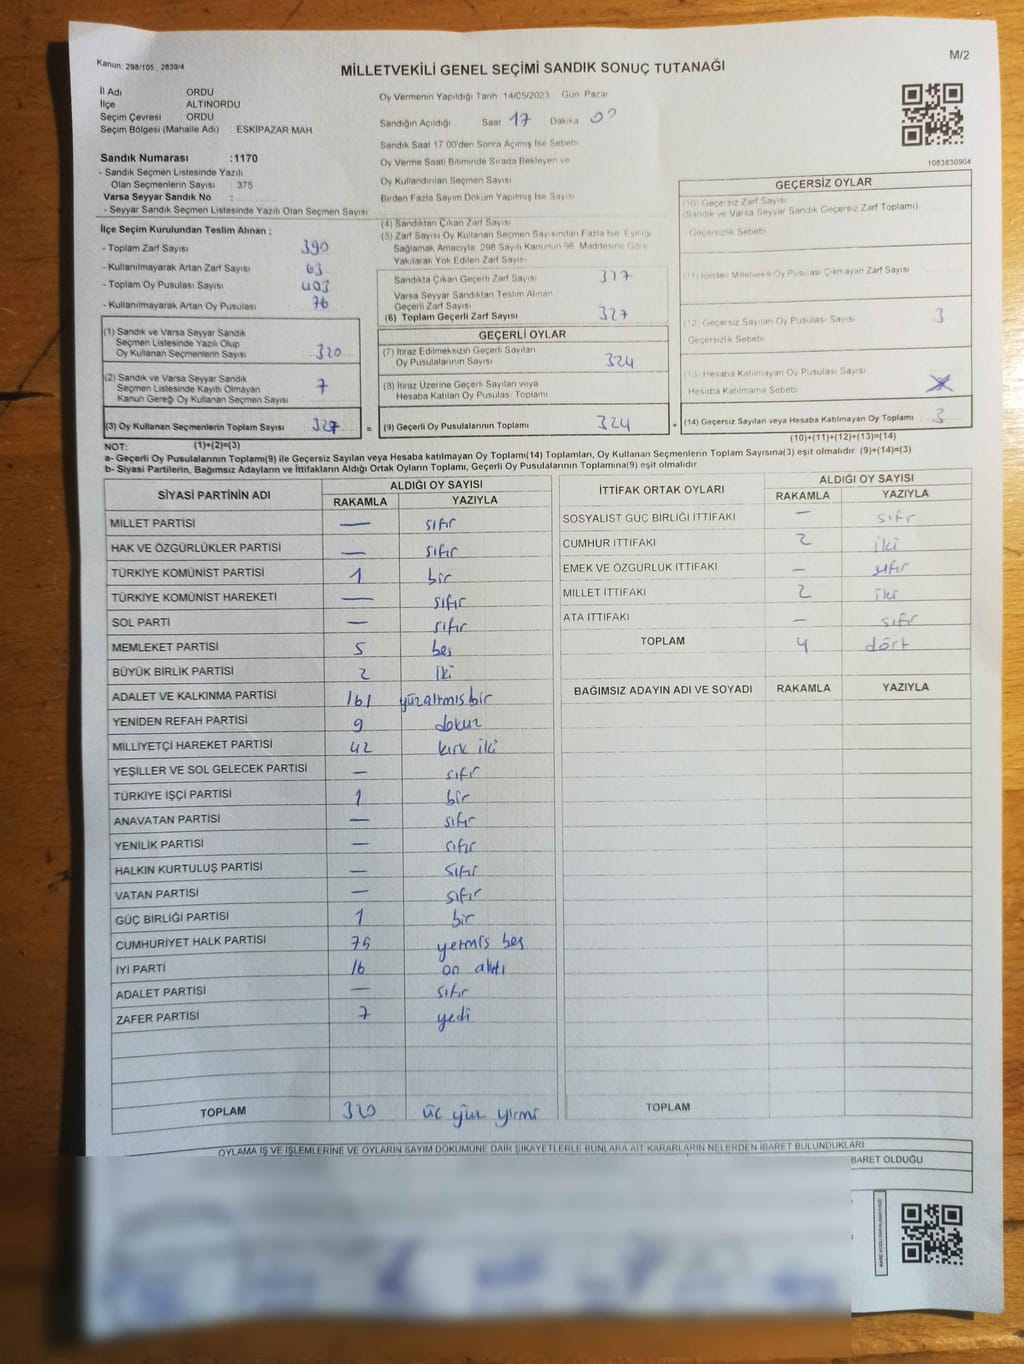 Kanun: 298/105 , 2839/4
M/2
MİLLETVEKİLİ GENEL SEÇİMİ SANDIK SONUÇ TUTANAĞI
İl Adı ORDU
İlçe ALTINORDU
Seçim Çevresi ORDU
Seçim Bölgesi (Mahalle Adı) ESKİPAZAR MAH
Sandık Numarası :1170
- Sandık Seçmen Listesinde Yazılı
Olan Seçmenlerin Sayısı : 375
Varsa Seyyar Sandık No :
- Seyyar Sandık Seçmen Listesinde Yazılı Olan Seçmen Sayısı
Oy Vermenin Yapıldığı Tarih 14/05/2023 Gün Pazar
Sandığın Açıldığı Saat 17 Dakika 00
Sandık Saat 17 00'den Sonra Açımış İse Sebebi
Oy Verme Saati Bitiminde Sırada Bekleyen ve
Oy Kullandırılan Seçmen Sayısı
Birden Fazla Sayım Döküm Yapılmış İse Sayısı
1083830904
İlçe Seçim Kurulundan Teslim Alınan ;
- Toplam Zarf Sayısı 390
- Kullanılmayarak Artan Zarf Sayısı 63
- Toplam Oy Pusulası Sayısı 403
- Kullanılmayarak Artan Oy Pusulası 76
(1) Sandık ve Varsa Seyyar Sandık
Seçmen Listesinde Yazılı Olup
Oy Kullanan Seçmenlerin Sayısı 320
(2) Sandık ve Varsa Seyyar Sandık
Seçmen Listesinde Kayıtlı Olmayan
Kanun Gereği Oy Kullanan Seçmen Sayısı 7
(3) Oy Kullanan Seçmenlerin Toplam Sayısı 327
(1)+(2)=(3)
(4) Sandıktan Çıkan Zarf Sayısı
(5) Zarf Sayısı Oy Kullanan Seçmen Sayısından Fazla İse Eşitliği
Sağlamak Amacıyla, 298 Sayılı Kanunun 98. Maddesine Göre
Yakılarak Yok Edilen Zarf Sayısı
Sandıkta Çıkan Geçerli Zarf Sayısı 327
Varsa Seyyar Sandıktan Teslim Alınan
Geçerli Zarf Sayısı
(6) Toplam Geçerli Zarf Sayısı 327
GEÇERLİ OYLAR
(7) İtiraz Edilmeksizin Geçerli Sayılan
Oy Pusulalarının Sayısı 324
(8) İtiraz Üzerine Geçerli Sayılan veya
Hesaba Katılan Oy Pusulası Toplamı
= (9) Geçerli Oy Pusulalarının Toplamı 324
GEÇERSİZ OYLAR
(10) Geçersiz Zarf Sayısı
(Sandık ve Varsa Seyyar Sandık Geçersiz Zarf Toplamı)
Geçersizlik Sebebi
(11) İçinden Milletvekili Oy Pusulası Çıkmayan Zarf Sayısı
(12) Geçersiz Sayılan Oy Pusulası Sayısı 3
Geçersizlik Sebebi
(13) Hesaba Katılmayan Oy Pusulası Sayısı
Hesaba Katılmama Sebebi
+ (14) Geçersiz Sayılan veya Hesaba Katılmayan Oy Toplamı 3
(10)+(11)+(12)+(13)=(14)
NOT:
a- Geçerli Oy Pusulalarının Toplamı(9) ile Geçersiz Sayılan veya Hesaba katılmayan Oy Toplamı(14) Toplamları, Oy Kullanan Seçmenlerin Toplam Sayısına(3) eşit olmalıdır. (9)+(14)=(3)
b- Siyasi Partilerin, Bağımsız Adayların ve İttifakların Aldığı Ortak Oyların Toplamı, Geçerli Oy Pusulalarının Toplamına(9) eşit olmalıdır
SİYASİ PARTİNİN ADI ALDIĞI OY SAYISI
RAKAMLA YAZIYLA
MİLLET PARTİSİ — sıfır
HAK VE ÖZGÜRLÜKLER PARTİSİ — sıfır
TÜRKİYE KOMÜNİST PARTİSİ 1 bir
TÜRKİYE KOMÜNİST HAREKETİ — sıfır
SOL PARTİ — sıfır
MEMLEKET PARTİSİ 5 beş
BÜYÜK BİRLİK PARTİSİ 2 iki
ADALET VE KALKINMA PARTİSİ 161 yüzaltmış bir
YENİDEN REFAH PARTİSİ 9 dokuz
MİLLİYETÇİ HAREKET PARTİSİ 42 kırk iki
YEŞİLLER VE SOL GELECEK PARTİSİ — sıfır
TÜRKİYE İŞÇİ PARTİSİ 1 bir
ANAVATAN PARTİSİ — sıfır
YENİLİK PARTİSİ — sıfır
HALKIN KURTULUŞ PARTİSİ — sıfır
VATAN PARTİSİ — sıfır
GÜÇ BİRLİĞİ PARTİSİ 1 bir
CUMHURİYET HALK PARTİSİ 75 yetmiş beş
İYİ PARTİ 16 on altı
ADALET PARTİSİ — sıfır
ZAFER PARTİSİ 7 yedi
TOPLAM 320 üç yüz yirmi
İTTİFAK ORTAK OYLARI ALDIĞI OY SAYISI
RAKAMLA YAZIYLA
SOSYALİST GÜÇ BİRLİĞİ İTTİFAKI — sıfır
CUMHUR İTTİFAKI 2 iki
EMEK VE ÖZGÜRLÜK İTTİFAKI — sıfır
MİLLET İTTİFAKI 2 iki
ATA İTTİFAKI — sıfır
TOPLAM 4 dört
BAĞIMSIZ ADAYIN ADI VE SOYADI RAKAMLA YAZIYLA
TOPLAM
OYLAMA İŞ VE İŞLEMLERİNE VE OYLARIN SAYIM DÖKÜMÜNE DAİR ŞİKAYETLERLE BUNLARA AİT KARARLARIN NELERDEN İBARET BULUNDUKLARI
BARET OLDUĞU